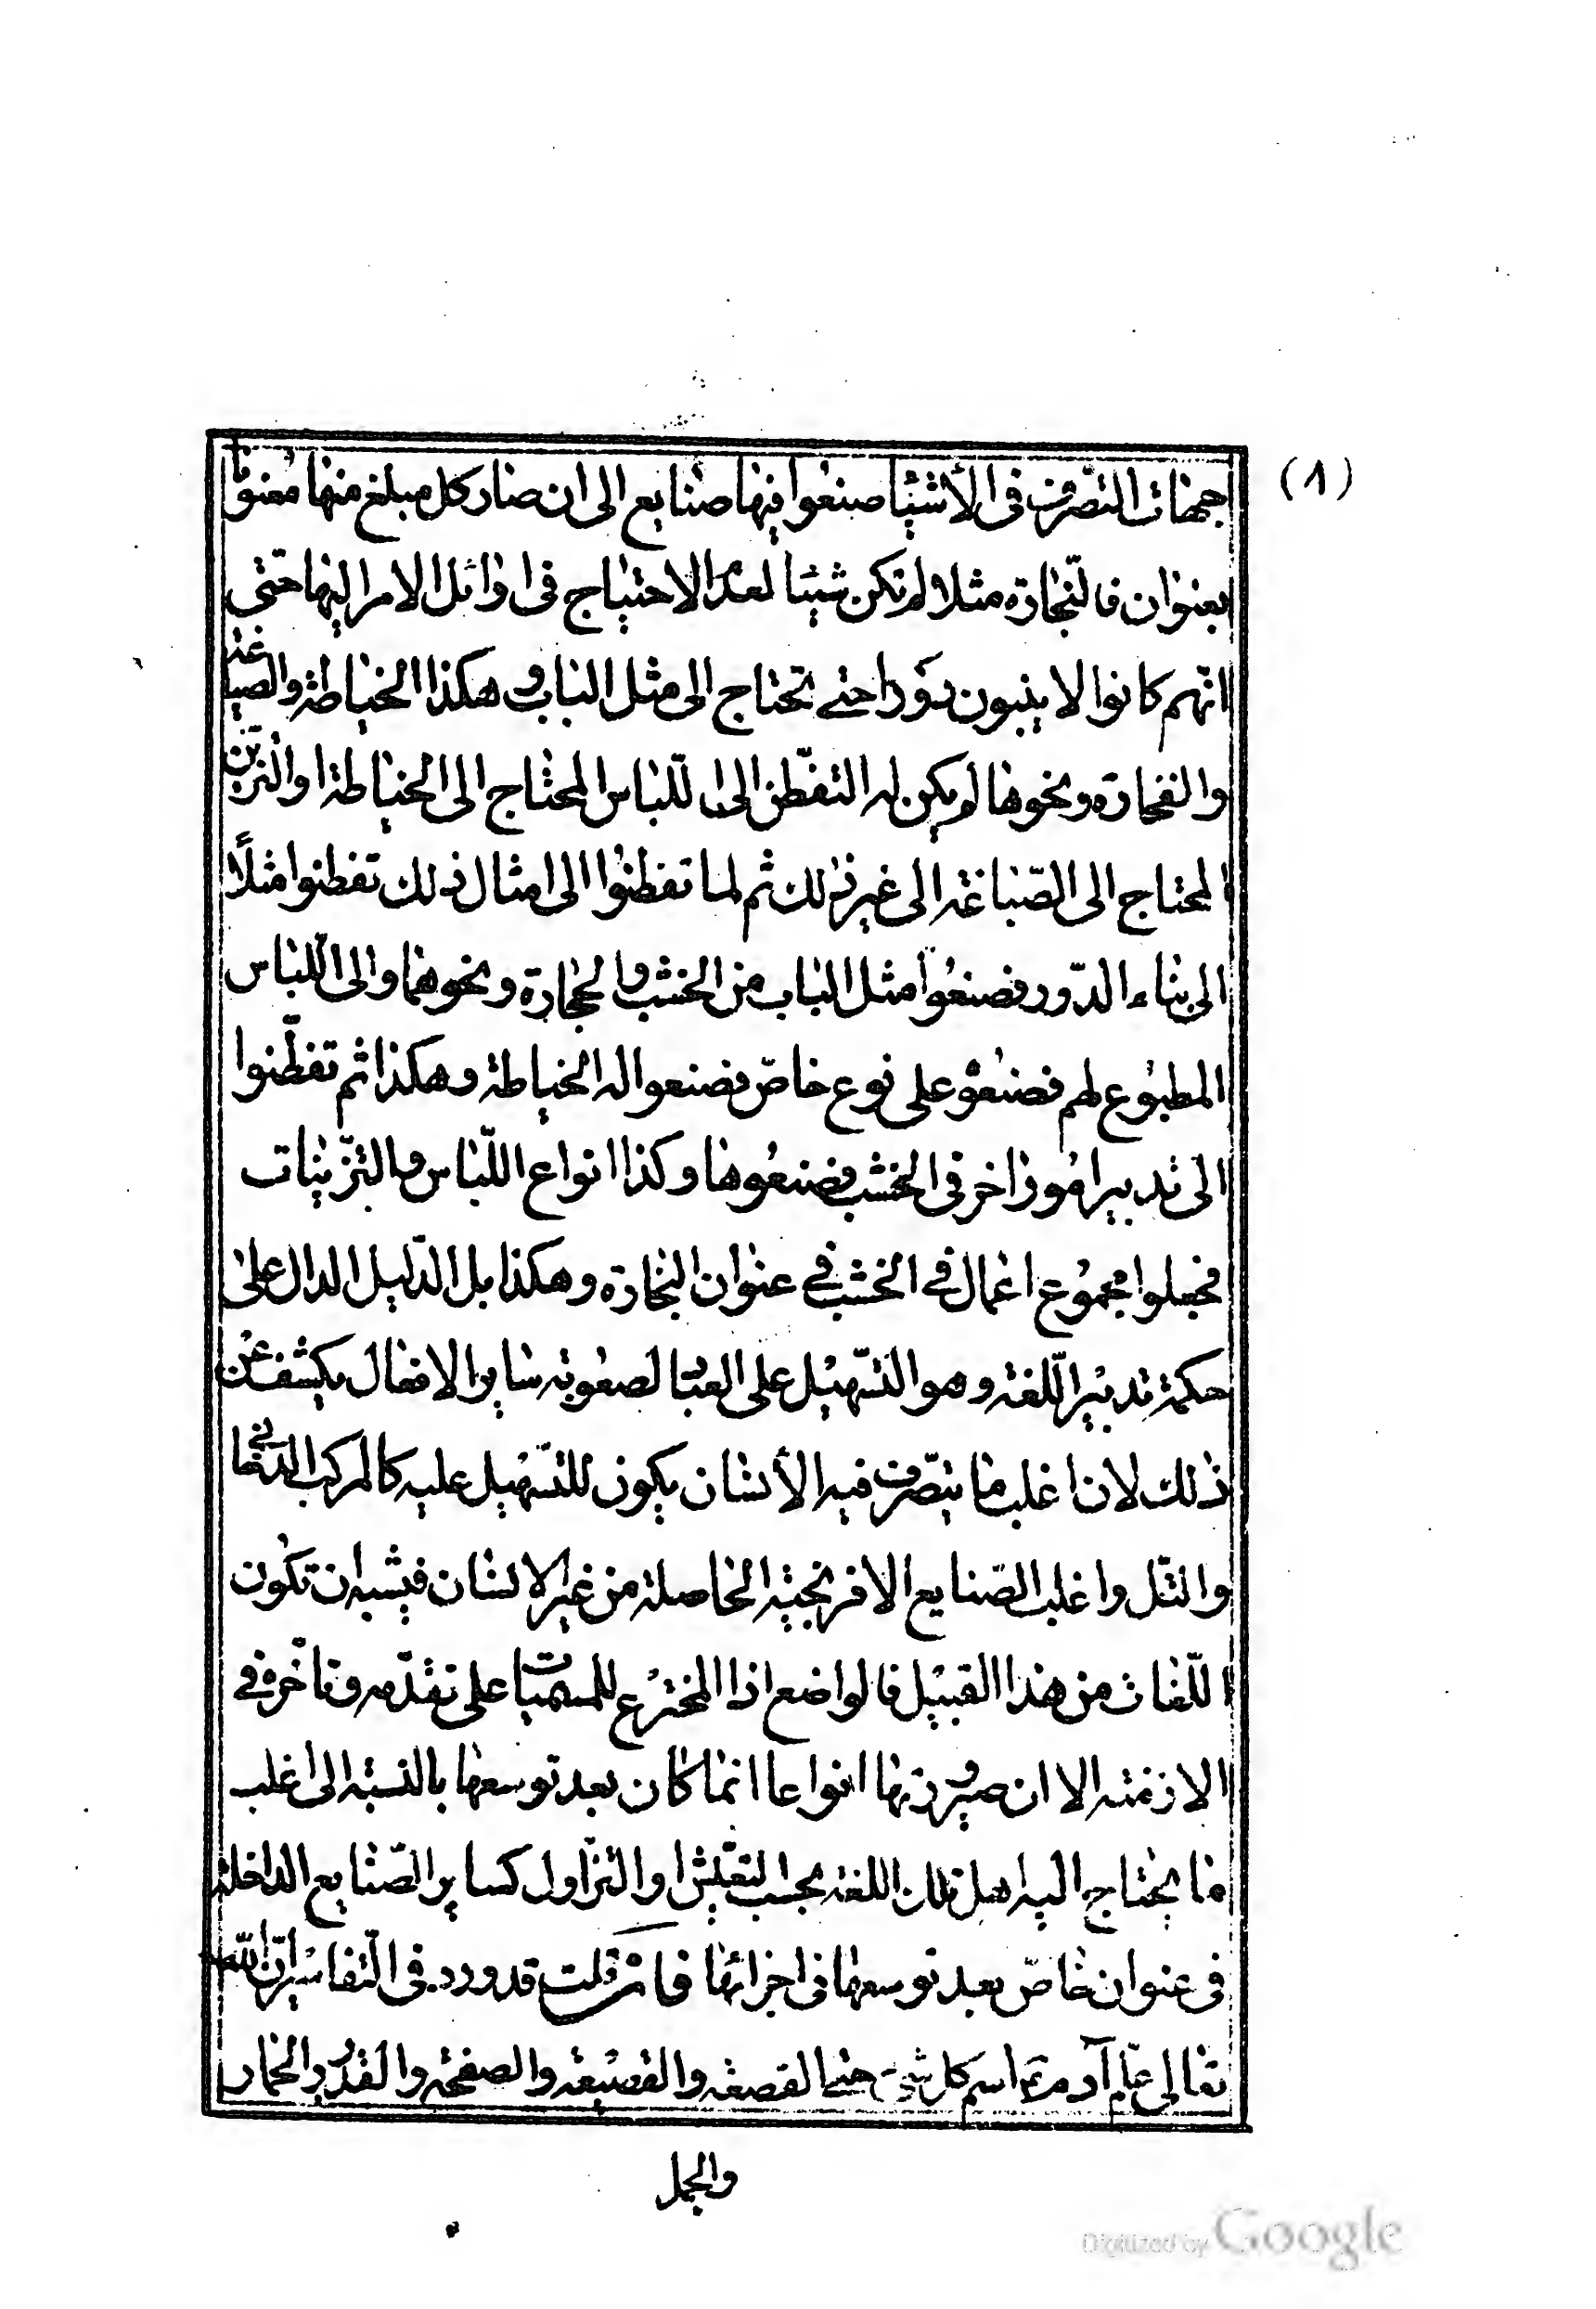 (٨)
جهات التصرف فى الأشيا صنعوا فيها صنايع الى ان صار كل مبلغ منها معنونا
بعنوان فالنّجارة مثلا لم تكن شيئا لعدم الاحتياج فى اوائل الامر اليها حتى
انهم كانوا لا يبنون دورا حتى تحتاج الى مثل الباب و هكذا الخياطة والصباغة
والفخارة ونحوها لم يكن له التفطّن الى اللّباس المحتاج الى الخياطة او التزيّن
المحتاج الى الصّباغة الى غير ذلك ثم لما تفطنوا الى امثال ذلك تفطنوا مثلًا
الى بناء الدّور فصنعوا مثل الباب من الخشب والحجارة ونحوهما والى اللّباس
المطبوع لهم فصنعوه على نوع خاصّ فصنعوا له الخياطة وهكذا ثم تفطّنوا
الى تدبير امور اخر فى الخشب فصنعوها وكذا انواع اللّباس والتزّينات
فجعلوا مجموع اعمال فى الخشب فى عنوان النجارة وهكذا بل الدّليل الدال على
حكمة تدبير اللّغة وهو التّسهيل على العباد لصعوبة ساير الافعال يكشف عن
ذلك لان اغلب ما يتصّرف فيه الأنسان يكون للتّسهيل عليه كالمركب الدّخانى
والتل واغلب الصّنايع الافرنجيّة الحاصلة من غير الانسان فيشبه ان تكون
اللّغات من هذا القبيل فالواضع اذا المخترع للمسميات على تقدّمه وتأخّره فى
الازمنة الا ان صيرورتها انواعا انما كان بعد توسعها بالنسبة الى اغلب
ما يحتاج اليه اهل تلك اللغة بحسب التعيّش او التزاول كساير الصّنايع الداخلة
فى عنوان خاصّ بعد توسعها فى اجزائها فان قلت قد ورد فى التّفاسير انّ الله
تعالى علم آدم اسم كل شىء حتى القصعة والقصيعة والصفحة والقدر والخمار
والجمل
Digitized by Google